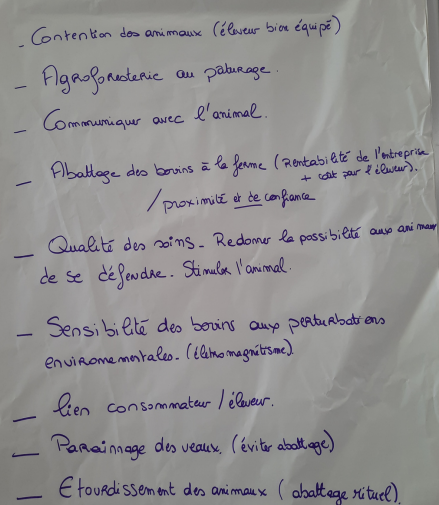 - Contention des animaux (éleveur bien équipé)
- Agroforesterie au pâturage.
- Communiquer avec l'animal.
- Abattage des bovins à la ferme (Rentabilité de l'entreprise
+ coût pour l'éleveur).
/ proximité et de confiance
- Qualité des soins - Redonner la possibilité aux animaux
de se défendre. Stimuler l'animal.
- Sensibilité des bovins aux perturbations
environnementales. (életromagnétisme)
- lien consommateur / éleveur.
- Parainage des veaux. (éviter abattage)
- Etourdissement des animaux (abattage rituel).